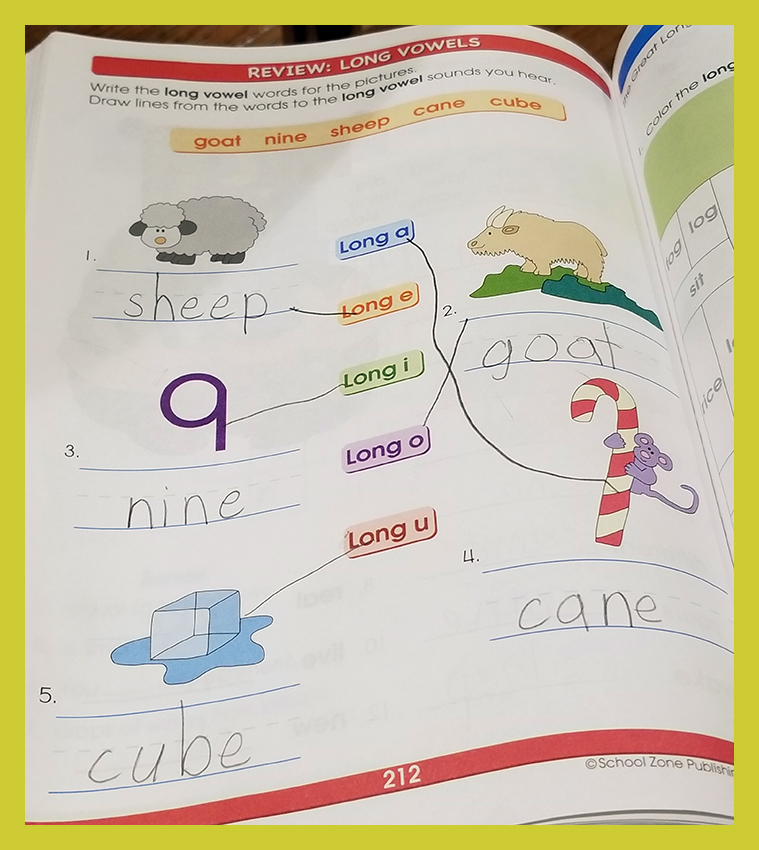 REVIEW: LONG VOWELS
Write the long vowel words for the pictures.
Draw lines from the words to the long vowel sounds you hear.
goat nine sheep cane cube
1.
sheep
Long a
Long e
Long i
Long o
Long u
2.
goat
9
3.
nine
4.
cane
5.
cube
212
©School Zone Publishin
The Great Lon
1. Color the long
log
sit